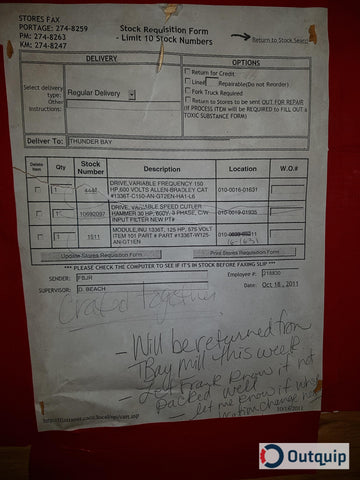 STORES FAX
PORTAGE: 274-8259
PM: 274-8263
KM: 274-8247
Stock Requisition Form
- Limit 10 Stock Numbers
Return to Stock Search
DELIVERY
Select delivery type: Regular Delivery
Other Instructions:
OPTIONS
Return for Credit
Repairable(Do not Reorder)
Fork Truck Required
Return to Stores to be sent OUT FOR REPAIR
(IF PROCESS ITEM will be REQUIRED to FILL OUT A
TOXIC SUBSTANCE FORM)
Deliver To: THUNDER BAY
Delete Item Qty Stock Number Description Location W.O.#
1 DRIVE,VARIABLE FREQUENCY 150
HP,600 VOLTS ALLEN-BRADLEY CAT
#1336T-C150-AN-GT2EN-HA1-L6
010-0016-01631
1 10692097 DRIVE, VARIABLE SPEED CUTLER
HAMMER 30 HP,'600V- 3 PHASE, C/W
INPUT FILTER NEW PT#
010-0019-01935
1 3511 MODULE,INU 1336T, 125 HP, 575 VOLT
ITEM 101 PART # PART #1336T-W125-
AN-GT1EN
16-1631
Update Stores Requisition Form
Print Stores Requisition Form
*** PLEASE CHECK THE COMPUTER TO SEE IF IT'S IN STOCK BEFORE FAXING SLIP ***
SENDER: FBJR Employee #: 218830
SUPERVISOR: D. BEACH Date: Oct 18, 2011
Crated Together
- Will be returned from
T Bay Mill this week
- Let Frank know if not
packed well
- let me know if
10/18/2011
Outquip